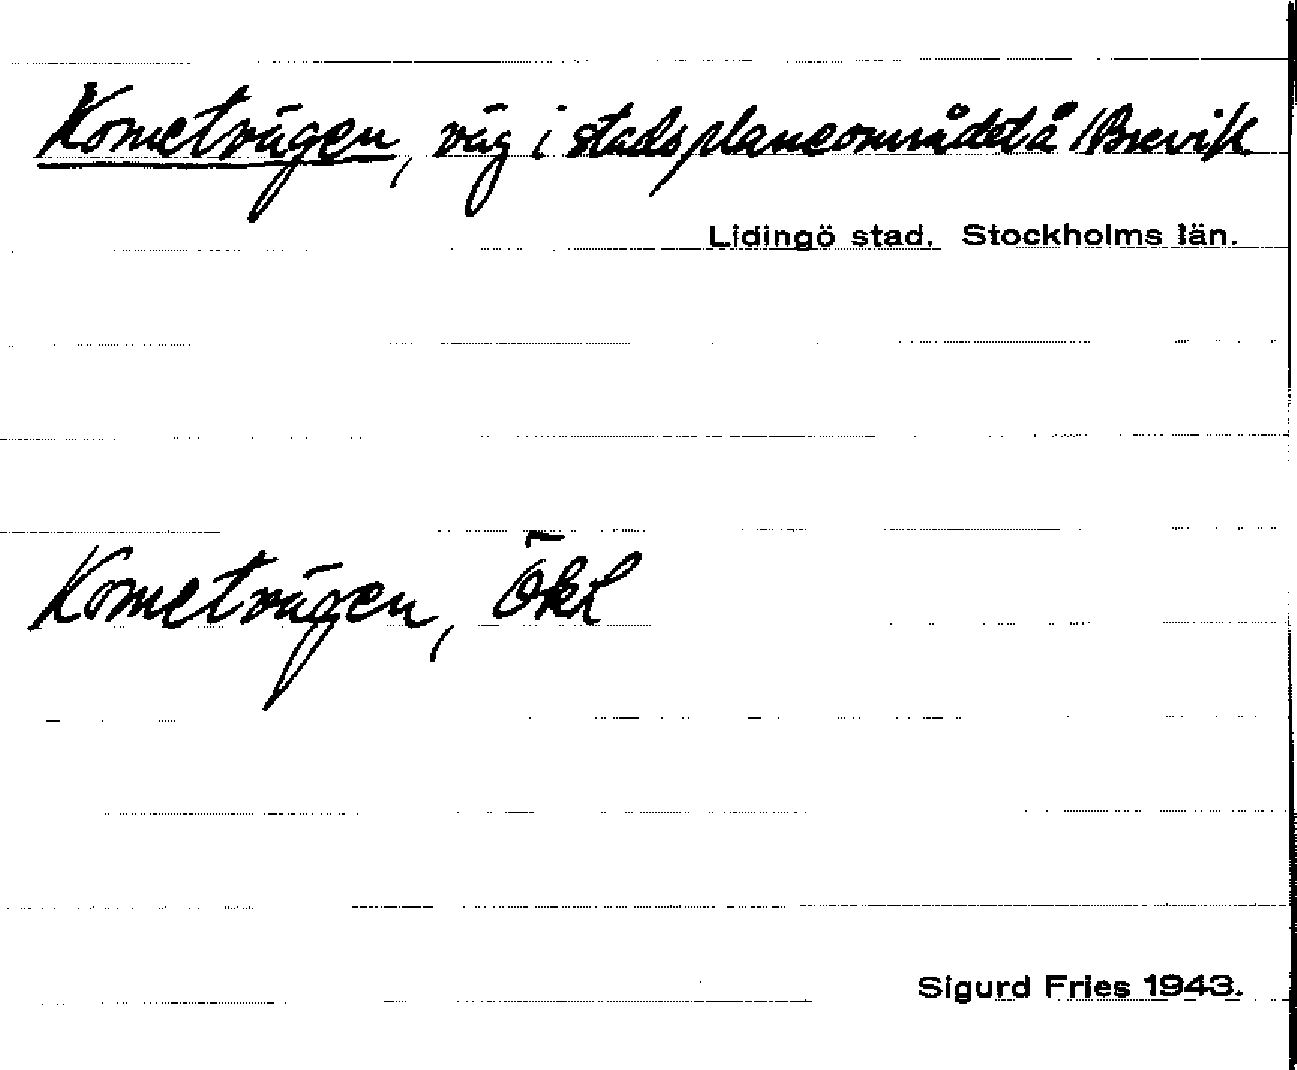 Kometvägen, väg i stadsplaneområdet å Brevik.
Lidingö stad. Stockholms län.
Kometvägen, Ökl
Sigurd Fries 1943.